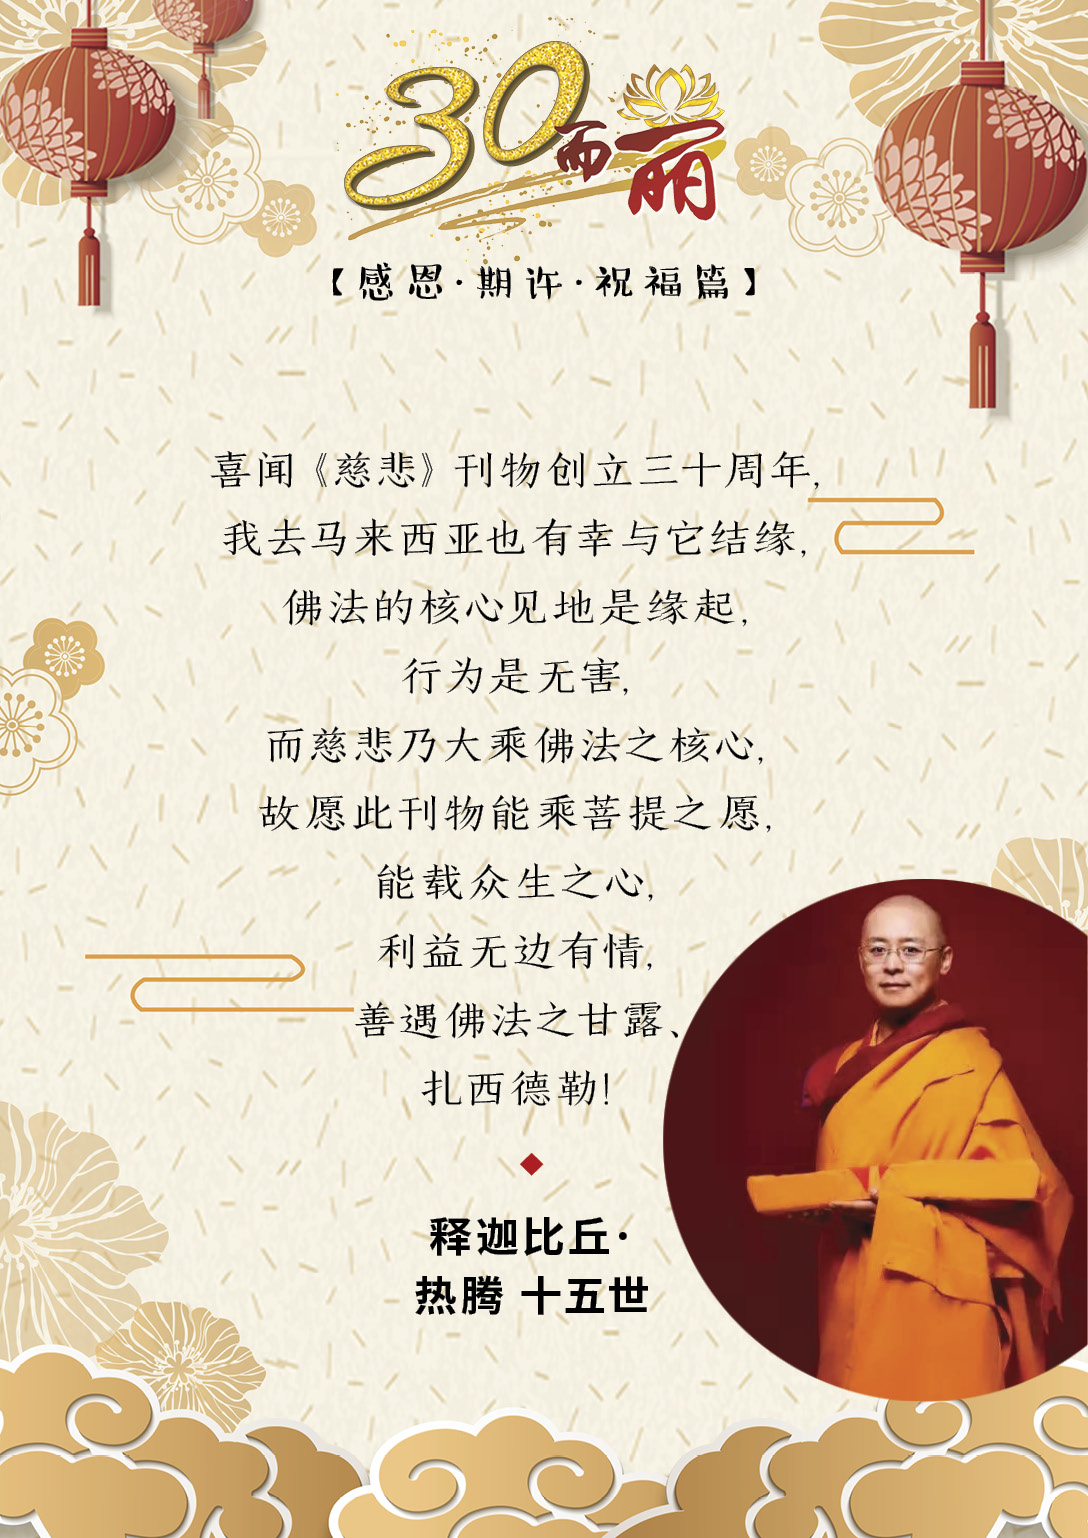 30而丽
【感恩·期许·祝福篇】
喜闻《慈悲》刊物创立三十周年,
我去马来西亚也有幸与它结缘,
佛法的核心见地是缘起,
行为是无害,
而慈悲乃大乘佛法之核心,
故愿此刊物能乘菩提之愿,
能载众生之心,
利益无边有情,
善遇佛法之甘露、
扎西德勒!
释迦比丘·
热腾 十五世